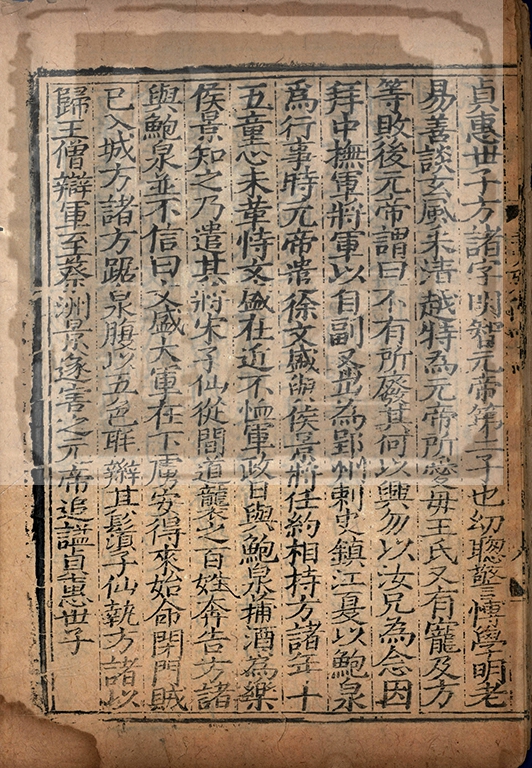 貞惠世子方諸字明智元帝第二子也幼聰警博學明老
易善談玄風采清越特為元帝所愛母王氏又有寵及方
等敗後元帝謂曰不有所廢其何以興勿以汝兄為念因
拜中撫軍將軍以自副又出為郢州刺史鎮江夏以鮑泉
為行事時元帝遣徐文盛與侯景將任約相持方諸年十
五童心未革恃文盛在近不恤軍政日與鮑泉捕酒為樂
侯景知之乃遣其將宋子仙從間道襲之百姓奔告方諸
與鮑泉並不信曰文盛大軍在下虜安得來始命閉門賊
已入城方諸方踞泉腹以五色毦辮其髯子仙執方諸以
歸王僧辯軍至蔡洲景遂害之元帝追謚貞惠世子